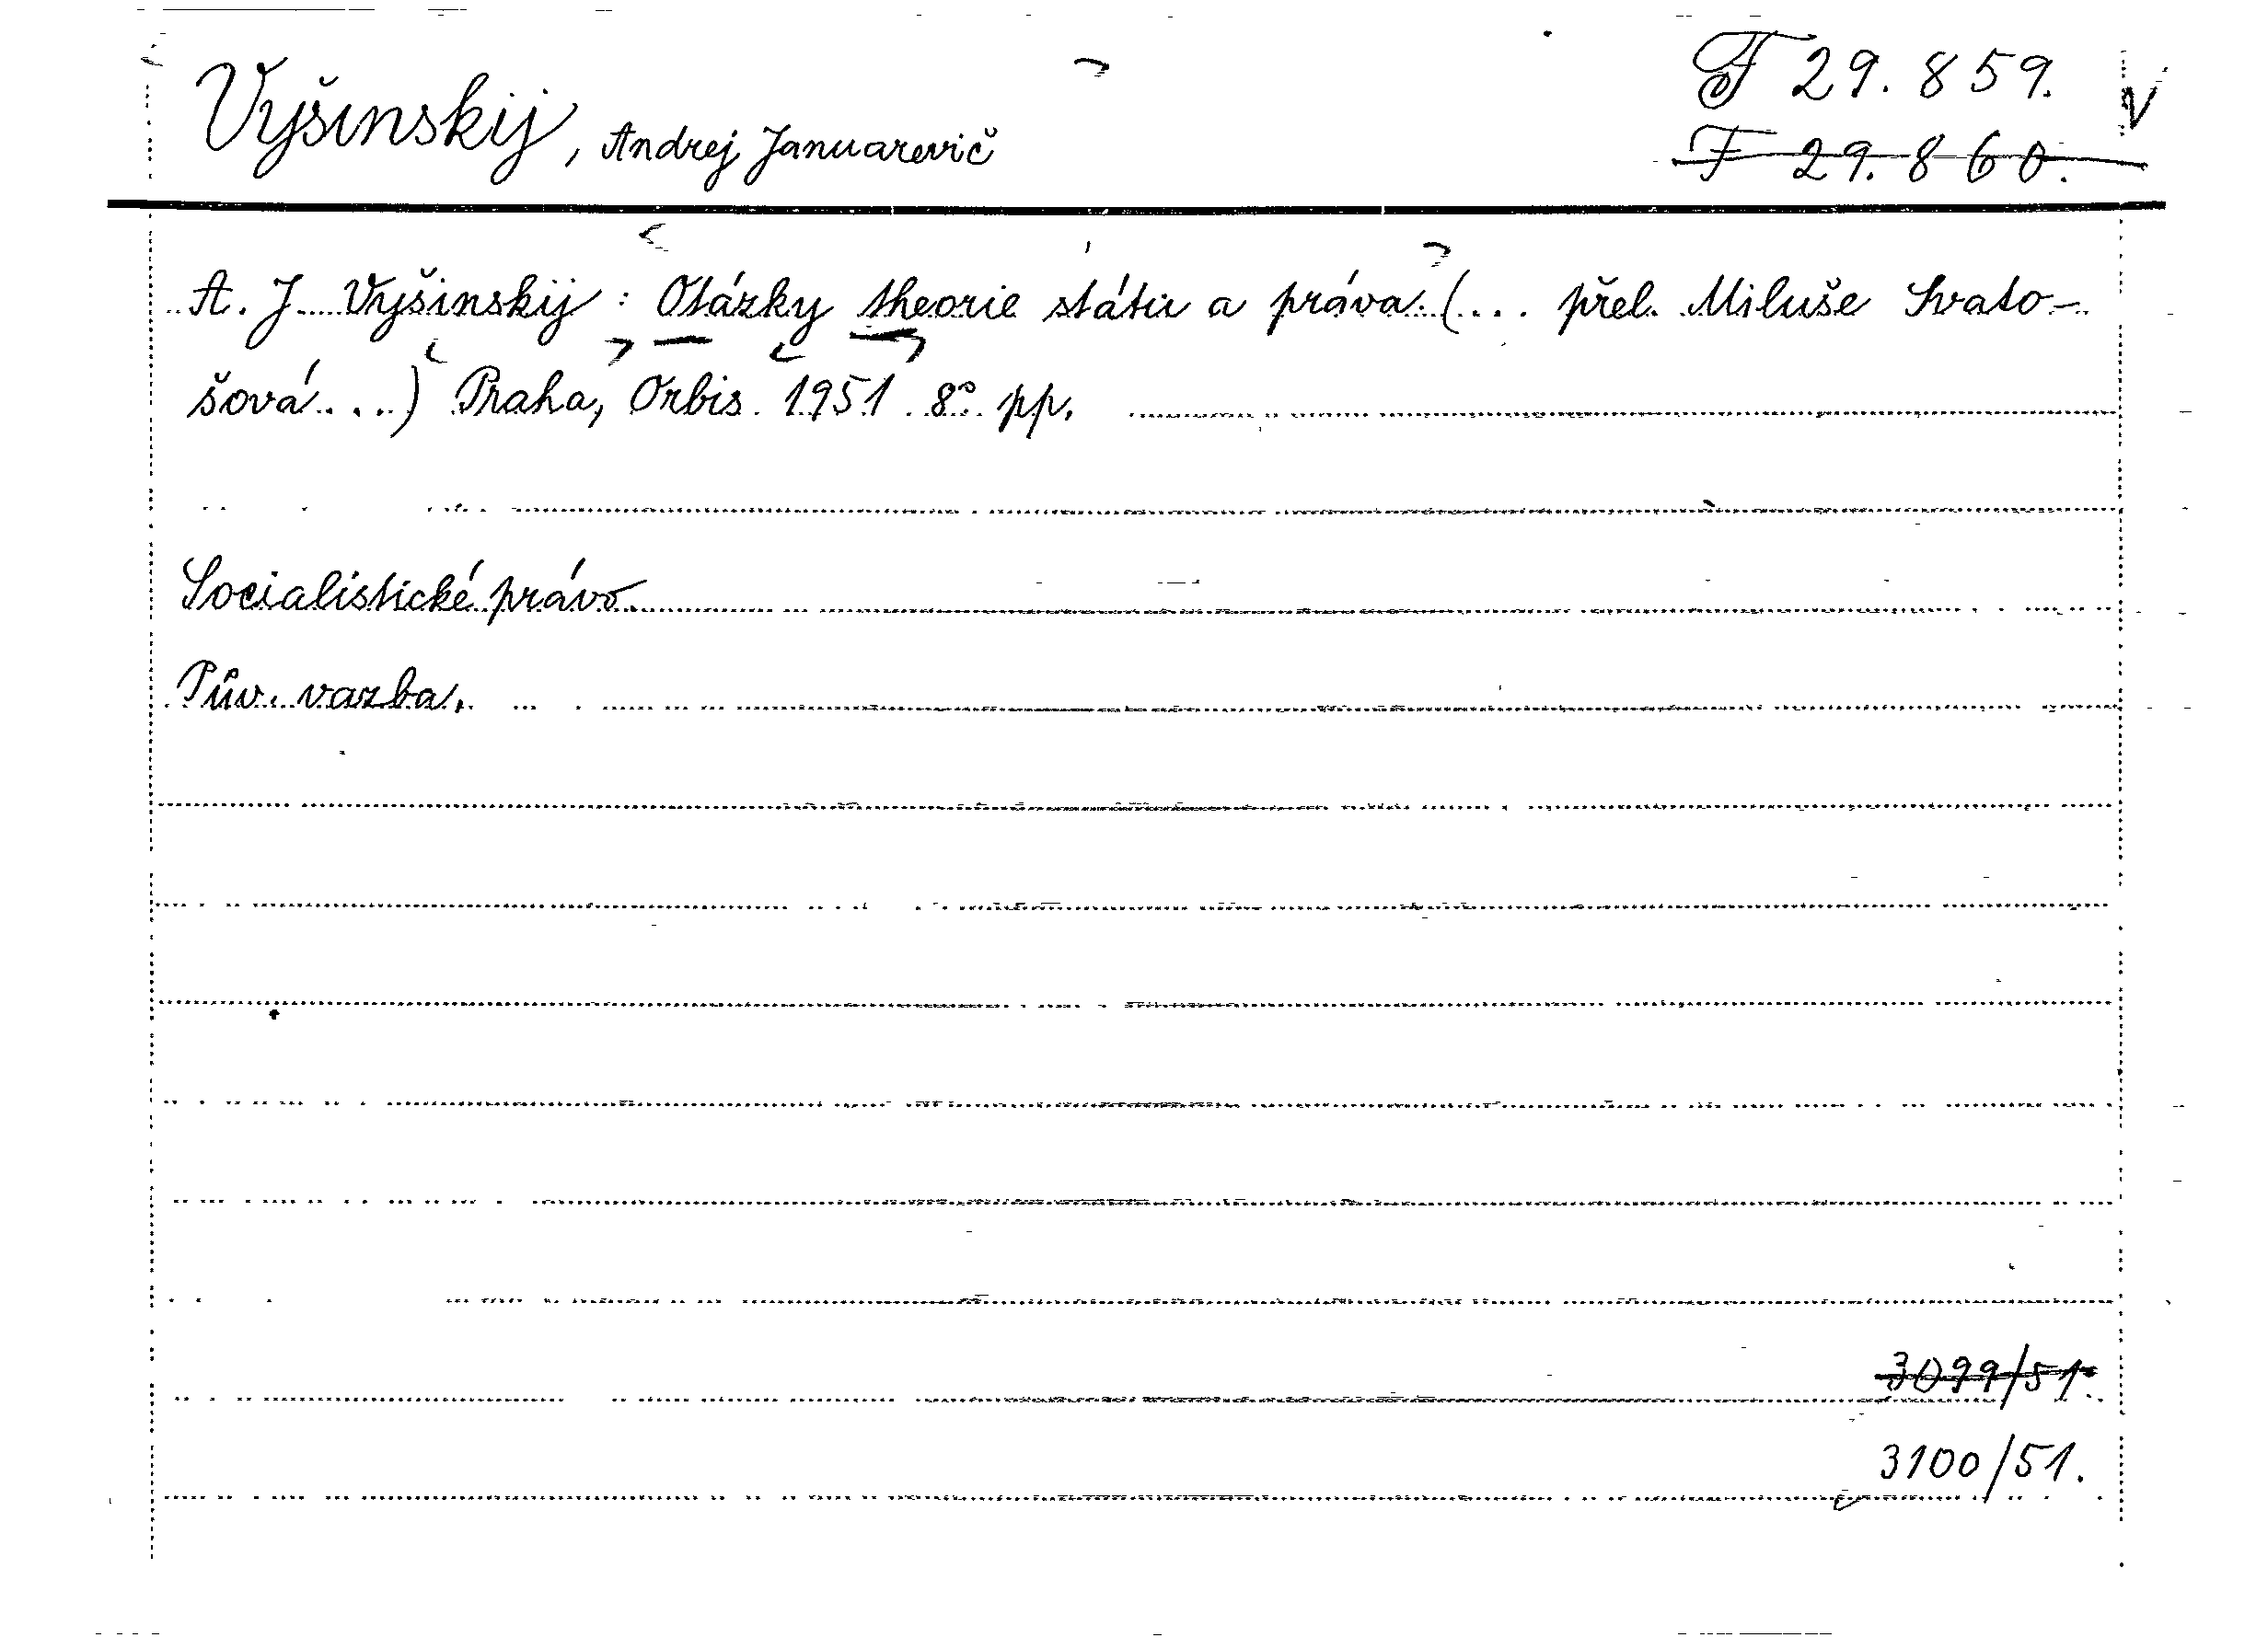 Vyšinskij, Andrej Januarevič
F 29.859. V
F 29.860.
A. J. Vyšinskij: Otázky theorie státu a práva. (... přel. Miluše Svato-
šová ...) Praha, Orbis 1951 8° pp.
Socialistické právo.
Pův. vazba.
3099/51.
3100/51.